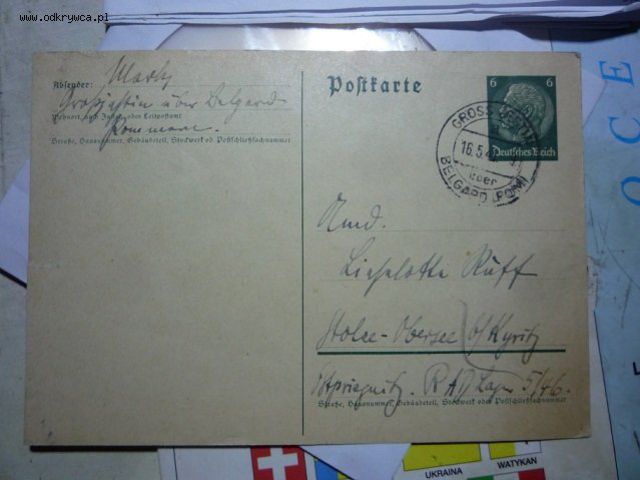 www.odkrywca.pl
Absender: Marty
Großjestin über Belgard
Wohnort, auch Zustell- oder Leitpostamt
Pommern.
Straße, Hausnummer, Gebäudeteil, Stockwerk od. Postschließfachnummer
Postkarte
6 6
Deutsches Reich
GROSS JESTIN
16.5.4
über
BELGARD (POM)
Lieselotte Rüff
Stolpe-Obersee b/Kyritz
Ostprignitz. RAD Lager 5/46.
Straße, Hausnummer, Gebäudeteil, Stockwerk oder Postschließfachnummer
UKRAINA
WATYKAN
O C E